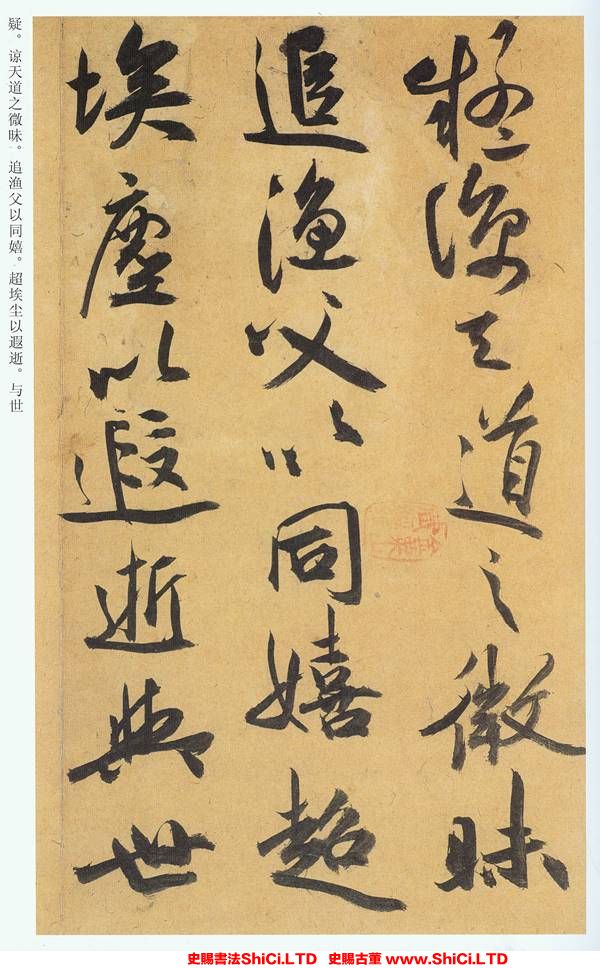 疑谅天道之微昧
追渔父以同嬉超
埃尘以遐逝与世
疑。谅天道之微昧。追渔父以同嬉。超埃尘以遐逝。与世
史賜書法ShiCi.LTD 史賜古董 www.ShiCi.LTD